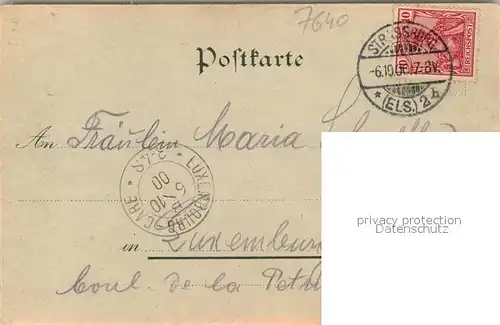 7640
Postkarte
STRASSBURG
-6.10.00.7-8V.
* (ELS.) 2 h
10 REICHSPOST 10
An Fräulein Maria
LUXEMBOURG GARE * 2-4S *
6 10 00
privacy protection
Datenschutz
in Luxemburg
Boul. de la Petru